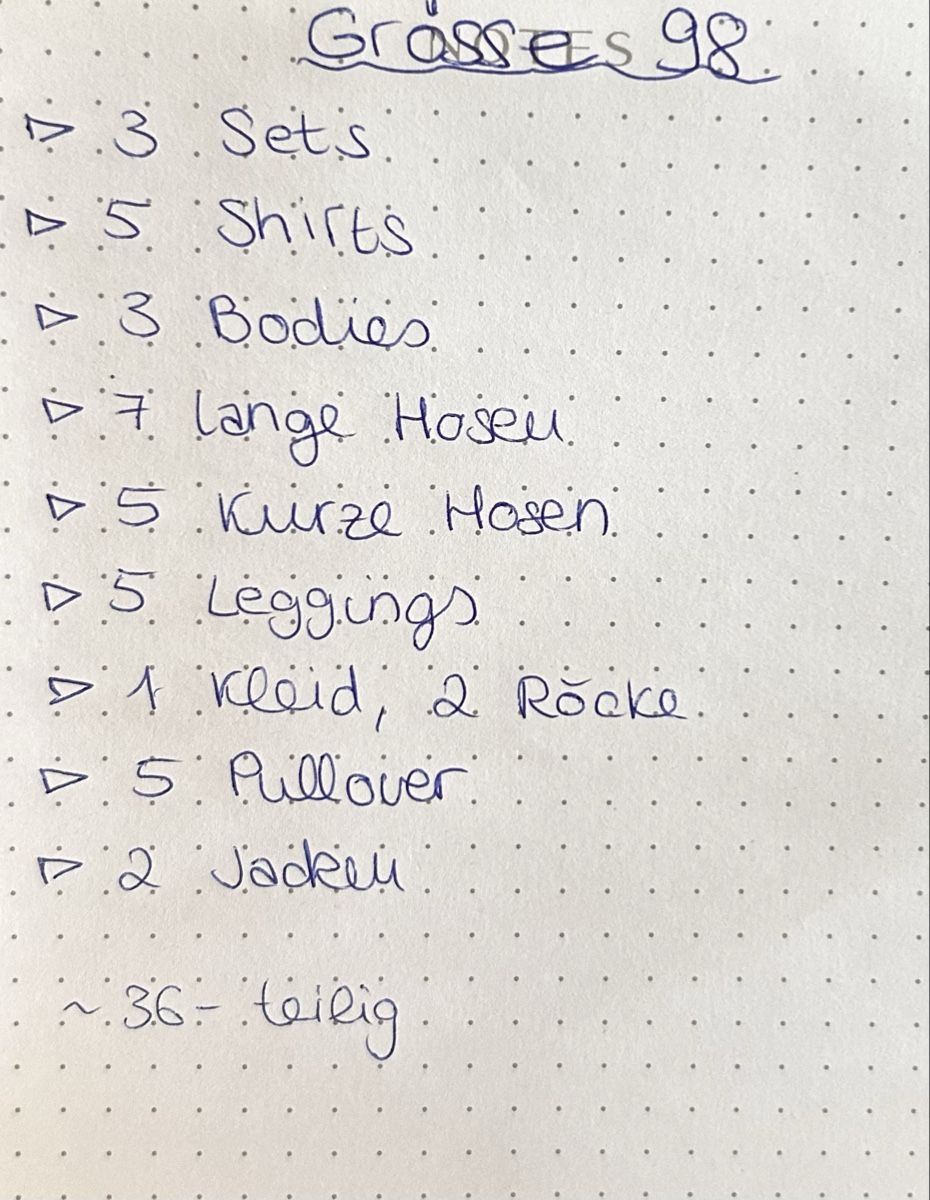 Grösse 98
NOTES
▷ 3 Sets
▷ 5 Shirts
▷ 3 Bodies
▷ 7 lange Hosen
▷ 5 Kurze Hosen
▷ 5 Leggings
▷ 1 Kleid, 2 Röcke
▷ 5 Pullover
▷ 2 Jacken
~ 36- teilig